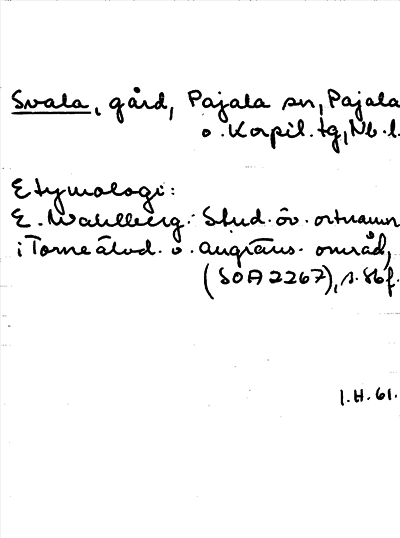 Svala, gård, Pajala sn, Pajala
o. Korpil. tg, Nb. l.
Etymologi:
E. Wahlberg: Stud. öv. ortnamn
i Torneälvd. o. angräns. områd,
(SOA 2267), s. 86f.
I.H. 61.